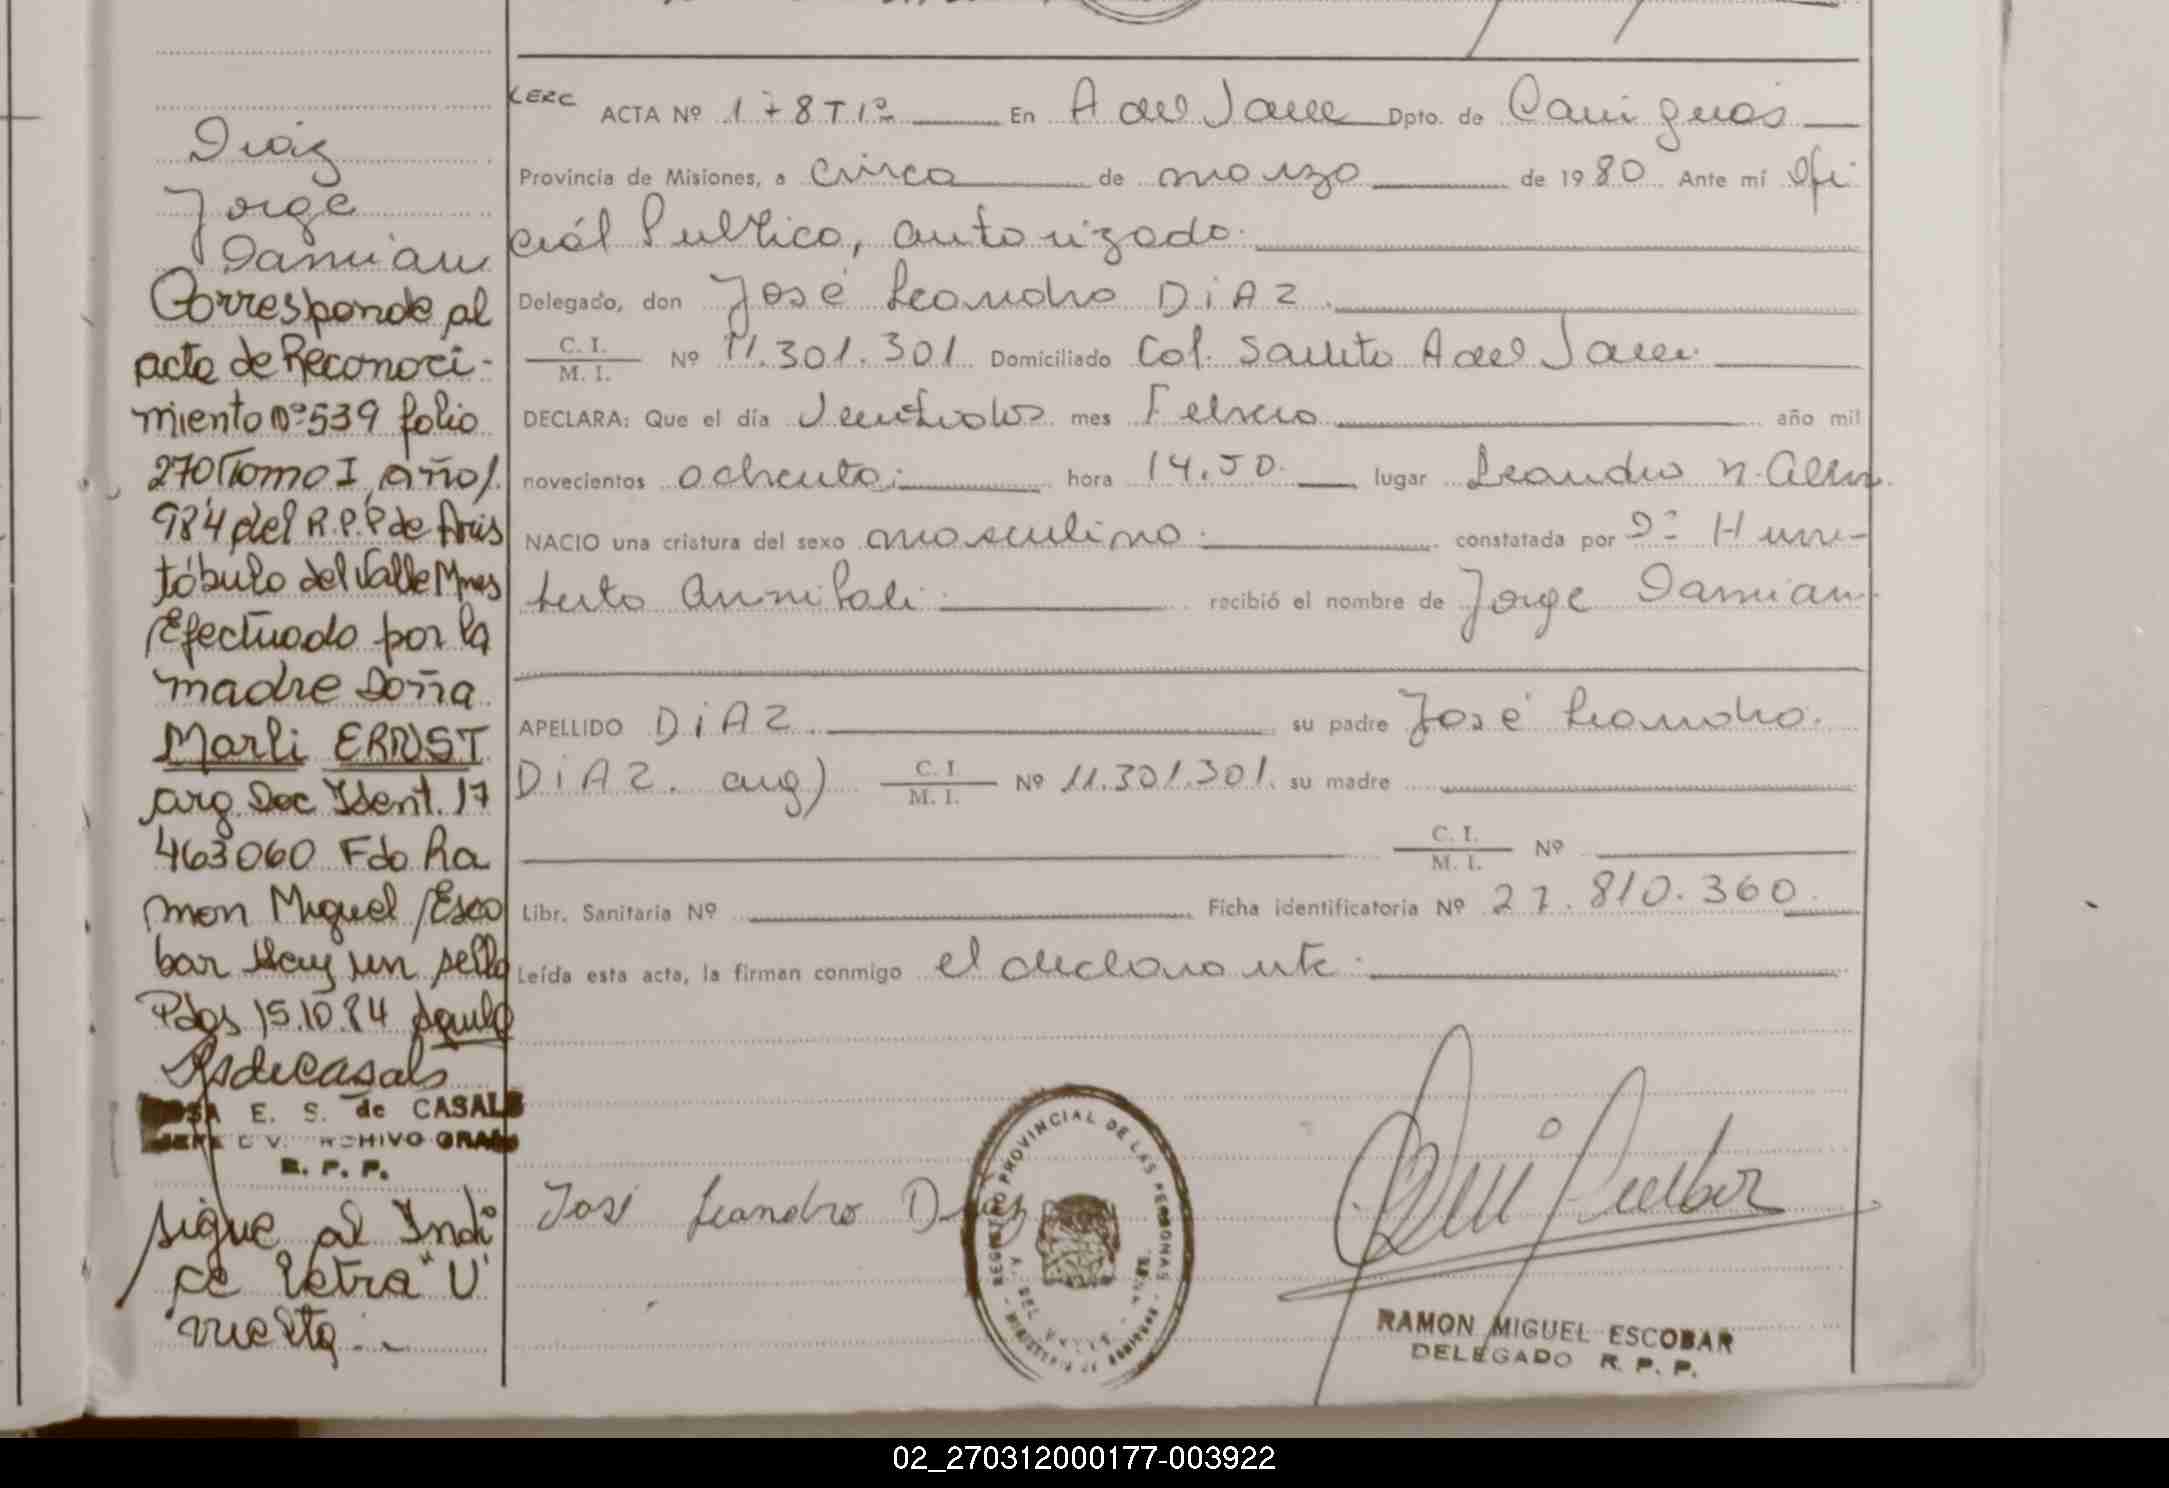 Diáz
Jorge
Damian
Corresponde al
acta de Reconoci-
miento Nº 539 folio
270 Tomo I, año 1.
984 del R.P.P de Aris
tóbulo del Valle Mnes
Efectuado por la
madre Doña
Marli ERNST
arg. Doc Ident. 17
463060 Fdo Ra
mon Miguel Esco
bar Hay un sello
Pdas 15.10.84
E. S. de CASALS
ARCHIVO GRAL
R. P. P.
sigue al Indi
ce letra "U"
vuelta
LERC ACTA Nº 178 T 1º En A del Valle Dpto. de Cainguás
Provincia de Misiones, a cinco de marzo de 1980 Ante mí Ofi
ciál Publico, autorizado.
Delegado, don José Leandro DiAZ.
C. I. / M. I. Nº 11.301.301 Domiciliado Col. Salto A del Valle.
DECLARA: Que el día Veintidos mes Febrero año mil
novecientos ochenta; hora 14.50. lugar Leandro N. Alem.
NACIO una criatura del sexo masculino. constatada por Dr. Hum-
berto Annibali. recibió el nombre de Jorge Damian.
APELLIDO DiAZ. su padre José Leandro.
DiAZ. arg) C. I. / M. I. Nº 11.301.301. su madre
C. I. / M. I. Nº
Libr. Sanitaria Nº Ficha identificatoria Nº 27.810.360.
Leída esta acta, la firman conmigo el declarante.
José Leandro Diaz
REGISTRO PROVINCIAL DE LAS PERSONAS
A. DEL VALLE
RAMON MIGUEL ESCOBAR
DELEGADO R. P. P.
02_270312000177-003922